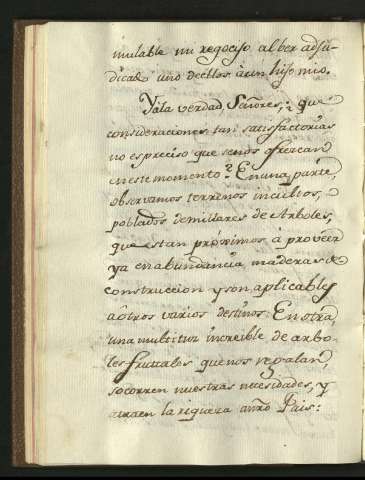 mulable mi regocijo al ber adju-
dicado uno de ellos à un hijo mio.
Y à la verdad Señores, ¿ que
consideraciones tan satisfactorias
no es preciso que se nos ofrezcan
en este momento? En una parte,
observamos terrenos incultos,
poblados de millares de Arboles,
que estan proximos à proveer
ya en abundancia maderas de
construccion y son aplicables
aòtros varios destinos: En otra,
una multitud increible de arbo-
les frutales que nos regalan,
socorren nuestras necesidades, y
atraen la riqueza anrõ Pais: